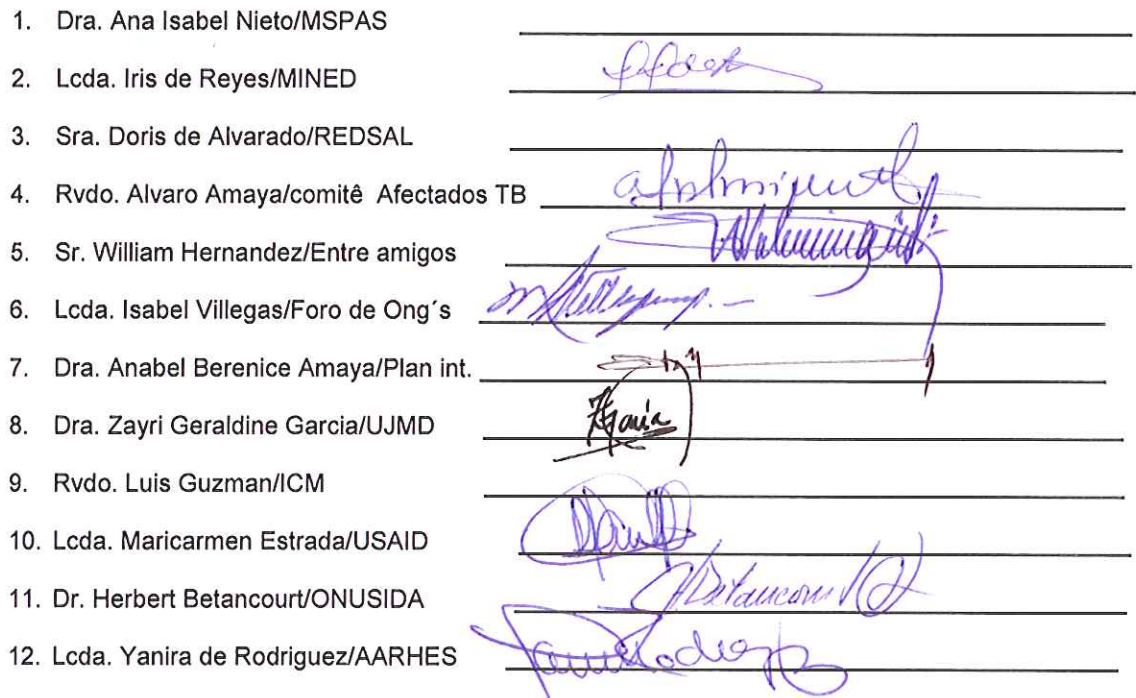 1. Dra. Ana Isabel Nieto/MSPAS
2. Lcda. Iris de Reyes/MINED
3. Sra. Doris de Alvarado/REDSAL
4. Rvdo. Alvaro Amaya/comitê Afectados TB
5. Sr. William Hernandez/Entre amigos
6. Lcda. Isabel Villegas/Foro de Ong´s
7. Dra. Anabel Berenice Amaya/Plan int.
8. Dra. Zayri Geraldine Garcia/UJMD
9. Rvdo. Luis Guzman/ICM
10. Lcda. Maricarmen Estrada/USAID
11. Dr. Herbert Betancourt/ONUSIDA
12. Lcda. Yanira de Rodriguez/AARHES